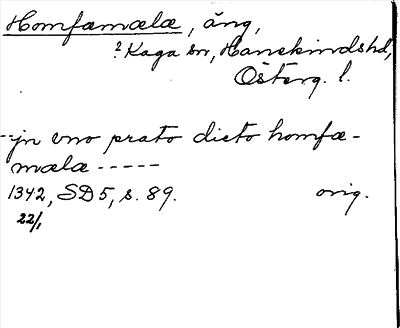 Homfamœlœ, äng,
? Kaga sn, Hanekindshd,
Österg. l.
--jn vno prato dicto homfœ-
mœlœ-----
1342, SD5, s. 89. orig.
22/1